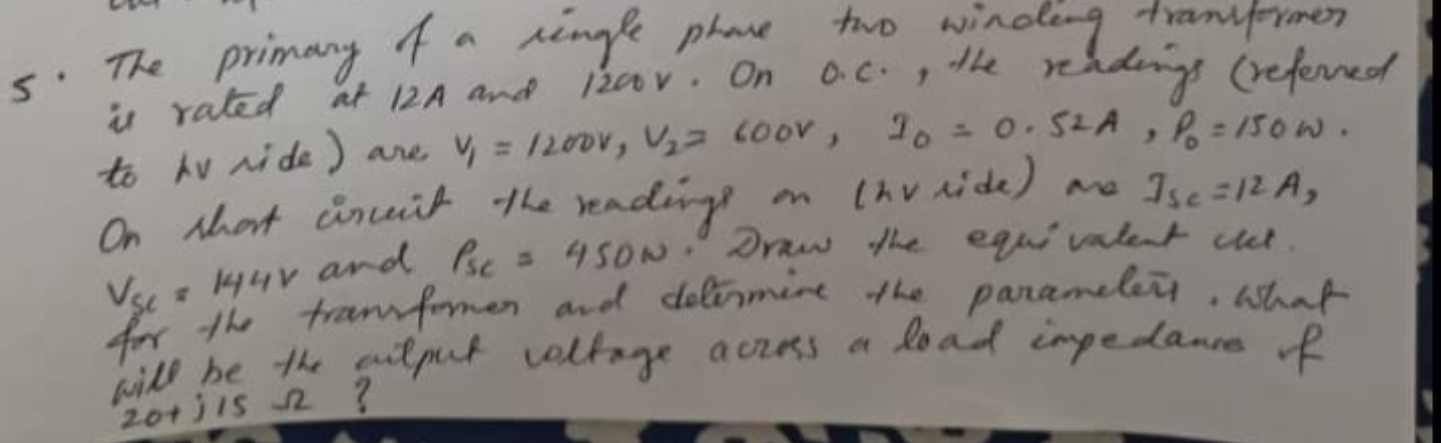 5. The primary of a single phase two winding transformer
is rated at 12A and 1200V. On O.C., the readings (referred
to hv side) are V₁ = 1200V, V₂ = 600V, I₀ = 0.52A, P₀ = 150W.
On short circuit the readings on (hv side) are Isc = 12A,
Vsc = 144V and Psc = 450W. Draw the equivalent ckt.
for the transformer and determine the parameters. What
will be the output voltage across a load impedance of
20+j15 Ω ?